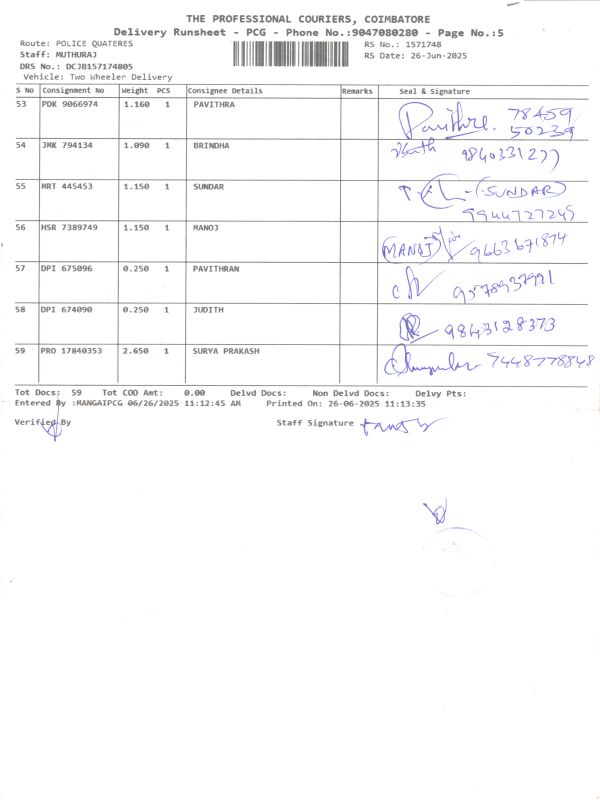 THE PROFESSIONAL COURIERS, COIMBATORE
Delivery Runsheet - PCG - Phone No.:9047080280 - Page No.:5
Route: POLICE QUATERES RS No.: 1571748
Staff: MUTHURAJ RS Date: 26-Jun-2025
DRS No.: DCJB157174805
Vehicle: Two Wheeler Delivery
S No Consignment No Weight PCS Consignee Details Remarks Seal & Signature
53 PDK 9066974 1.160 1 PAVITHRA Pavithra 78459
50239
54 JMK 794134 1.090 1 BRINDHA 9840331277
55 MRT 445453 1.150 1 SUNDAR (SUNDAR)
9944727245
56 HSR 7389749 1.150 1 MANOJ MANOJ 9663671874
57 DPI 675096 0.250 1 PAVITHRAN 9578937991
58 DPI 674090 0.250 1 JUDITH 9843128373
59 PRO 17840353 2.650 1 SURYA PRAKASH 7448778848
Tot Docs: 59 Tot COD Amt: 0.00 Delvd Docs: Non Delvd Docs: Delvy Pts:
Entered By :MANGAIPCG 06/26/2025 11:12:45 AM Printed On: 26-06-2025 11:13:35
Verified By Staff Signature